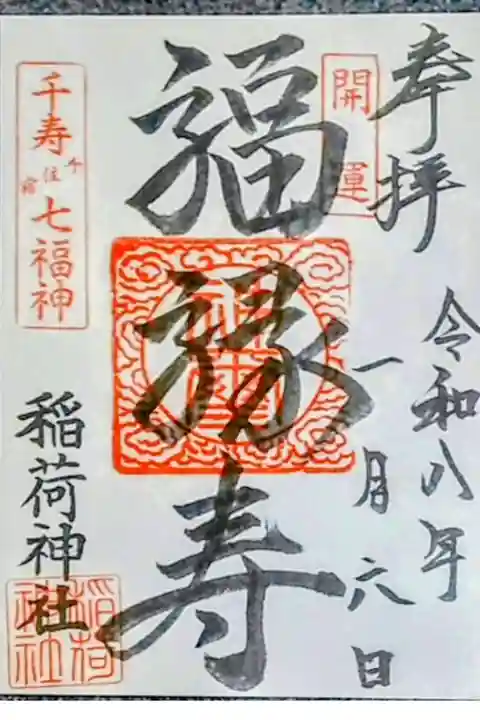 奉拝
令和八年
一月六日
開運
福禄寿
千寿七福神
千住宿
稲荷神社
稲荷神社